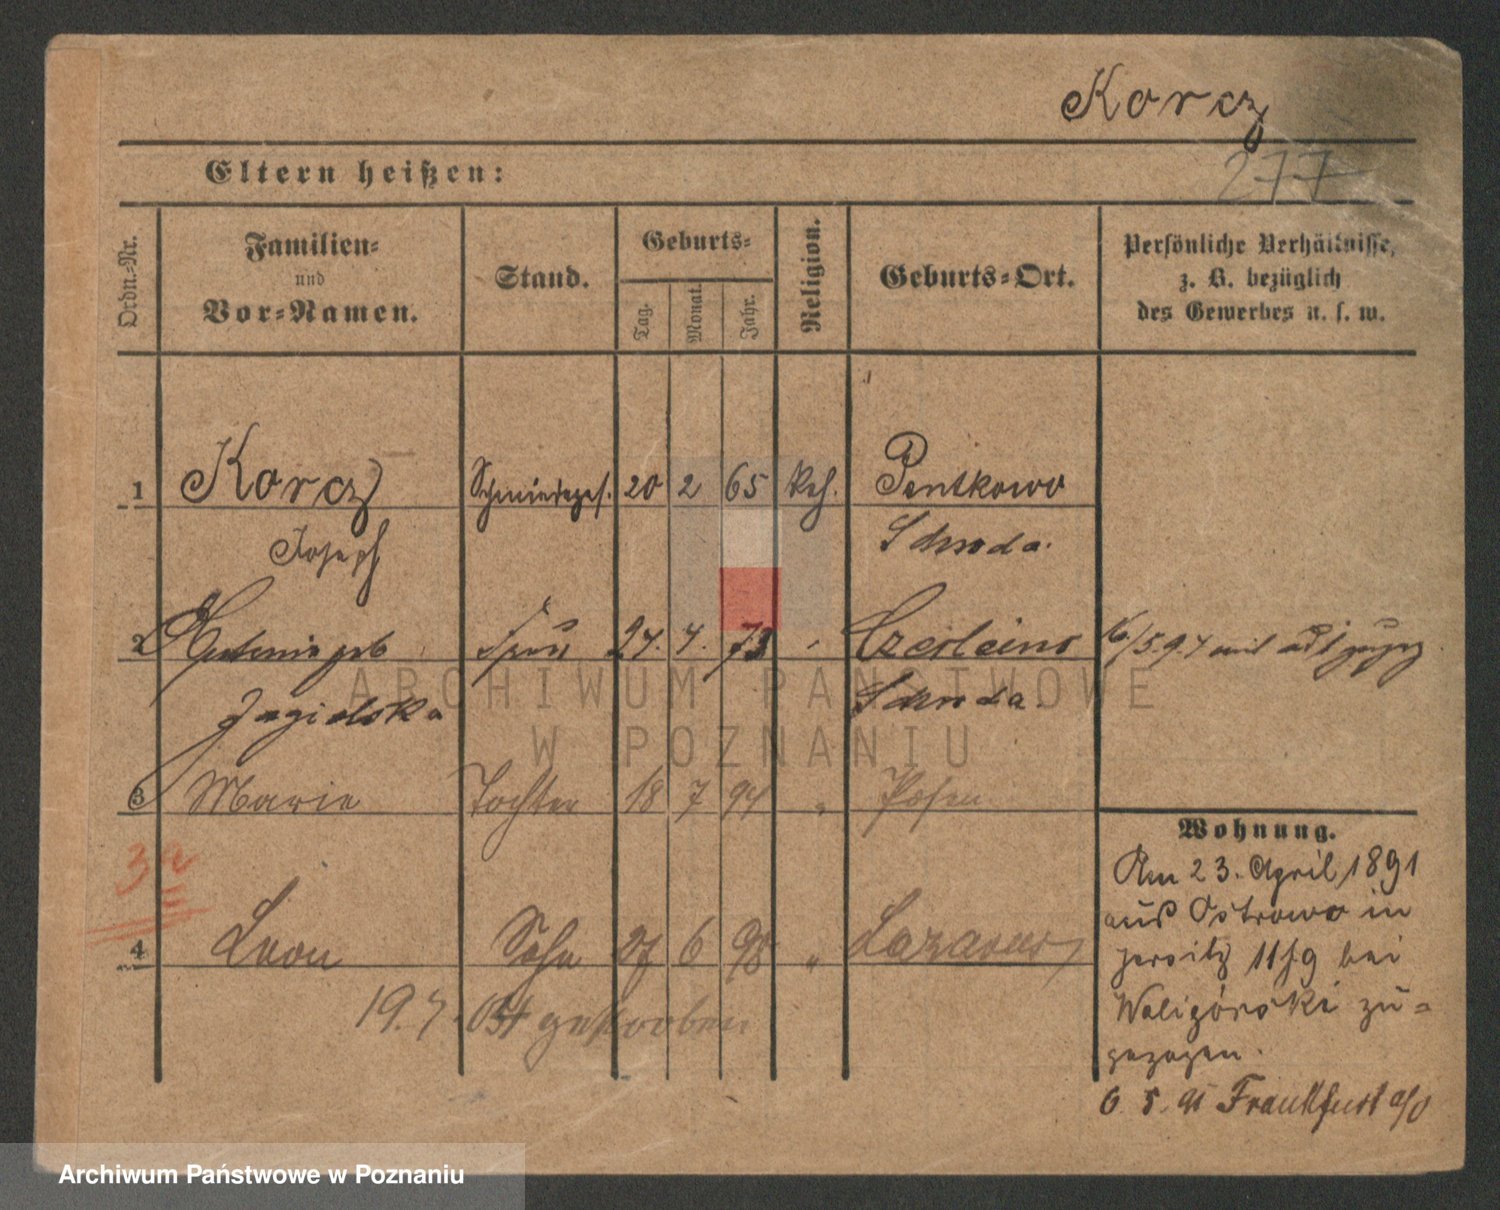 Korcz
277
Eltern heißen:
Ordn.-Nr.
Familien-
und
Vor-Namen.
Stand.
Geburts-
Tag.
Monat.
Jahr.
Religion.
Geburts-Ort.
Persönliche Verhältnisse,
z. B. bezüglich
des Gewerbes u. s. w.
1 Korcz Schmiedeges. 20 2 65 kath. Pentkowo
Joseph Schroda.
2 Antonie geb. Frau 24. 4. 73 " Czerleino
Jagielska Schroda.
3 Marie Tochter 18 7 94 " Posen
3a
4 Leon Sohn 27 6 98 " Lazarus
19.7. gestorben
Wohnung.
Am 23. April 1891
aus Ostrowo in
Jersitz 119 bei
Waligórski zu-
gezogen.
6. 5. 95 Frankfurt a/O
ARCHIWUM PAŃSTWOWE
W POZNANIU
Archiwum Państwowe w Poznaniu